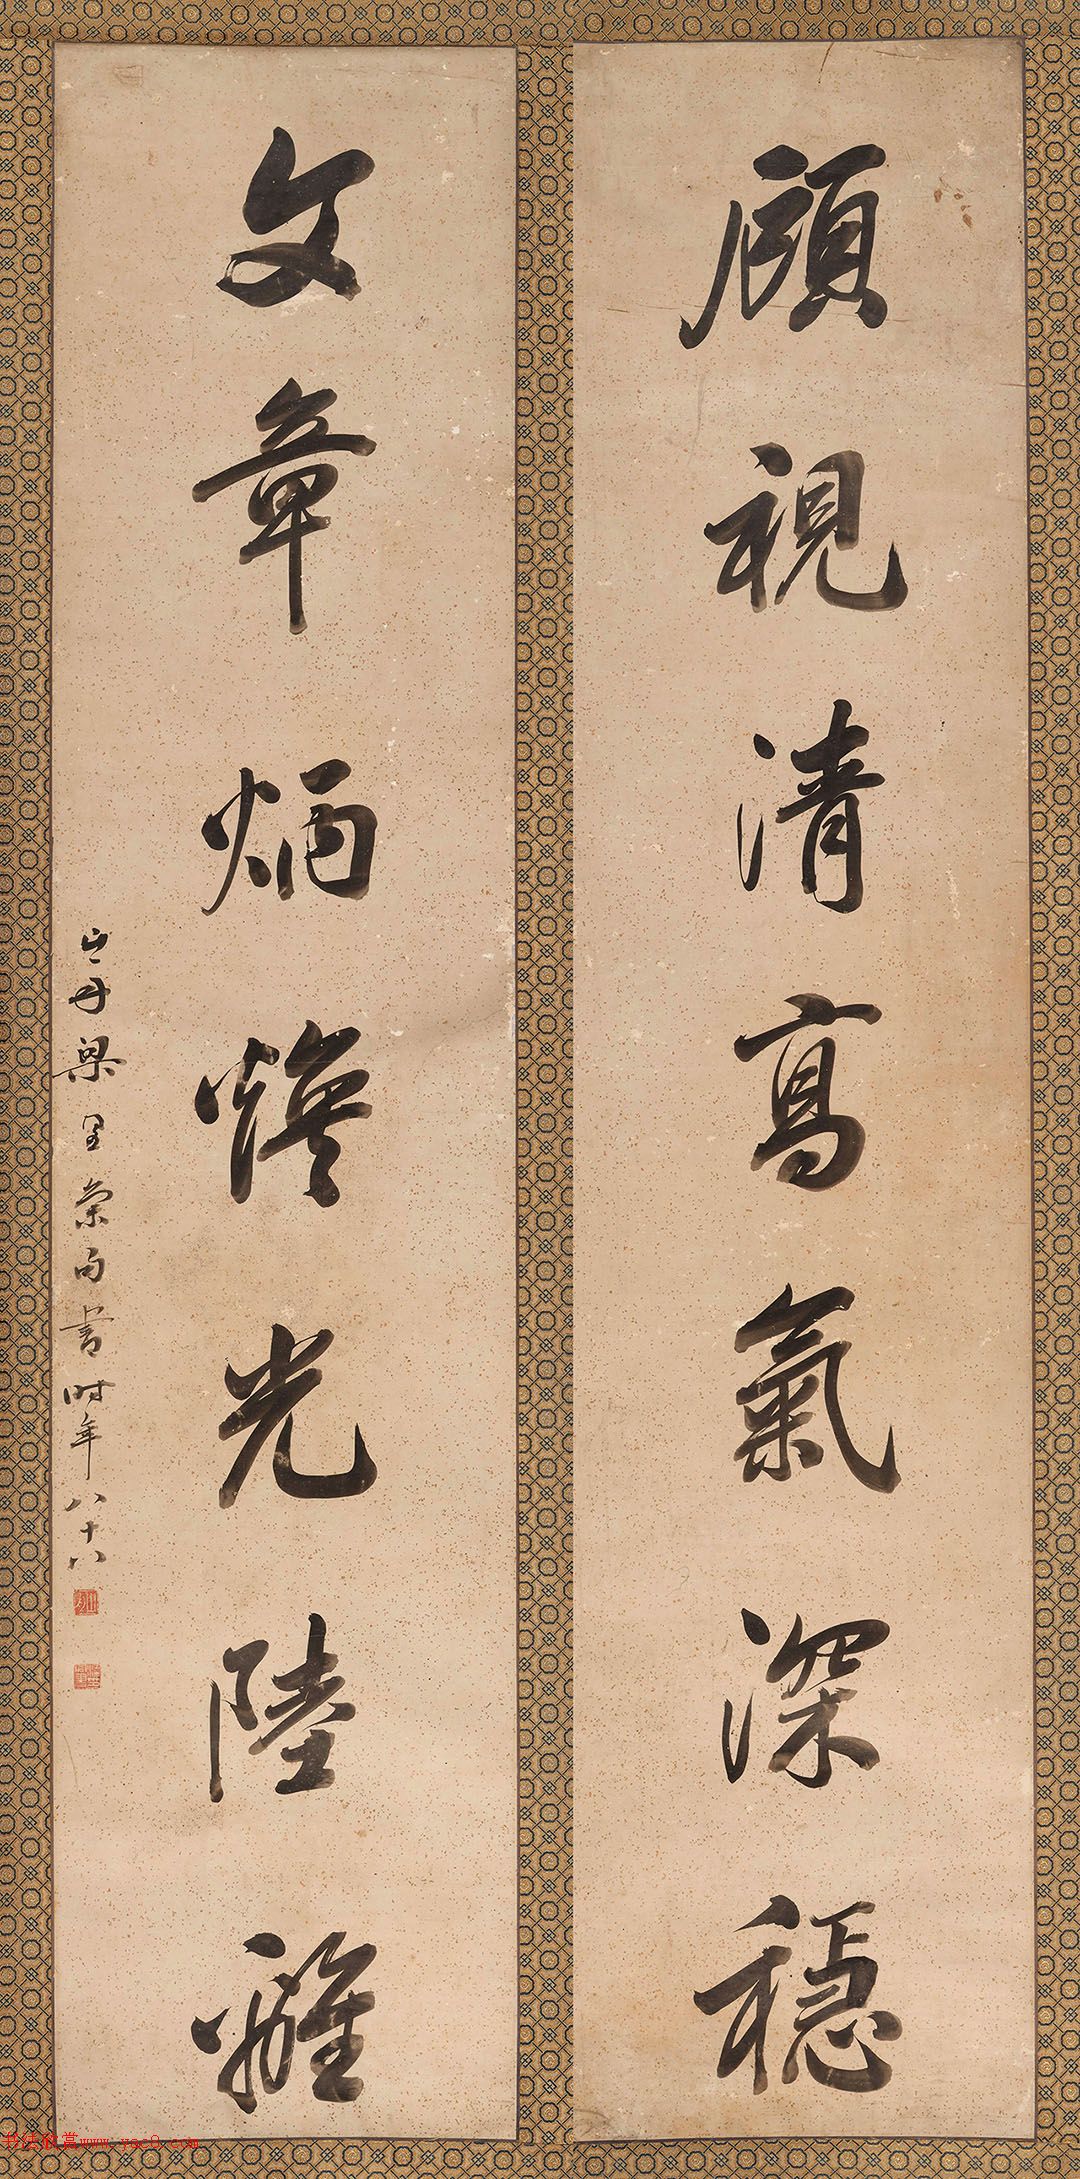 顧視清高氣深穩
文章炳煥光陸離
山舟梁同書時年八十八
书法欣赏www.yac8.com